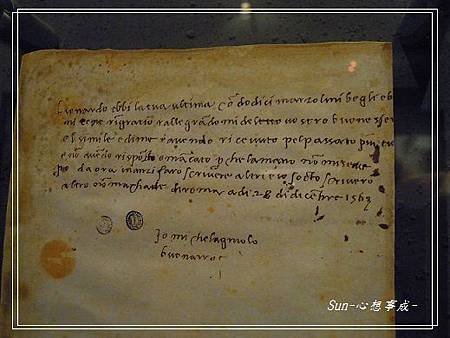 Lionardo ebbi la tua ultima cō dodici marzolini begli e b
mi e che ri gratio rallegrādomi del cto uostro buono esser
el simile e di me e auendo ri ceuuto pel passato piu tue
e nō auendo rispōsto o mācato p che la mano nō mi serue
po da ora inanzi faro scriuere altri e io soctō scriuerro
altro nō m achade di roma a di 28 di dicēbre 1563
Io mi chelagniolo
buonarroti
Sun-心想事成-